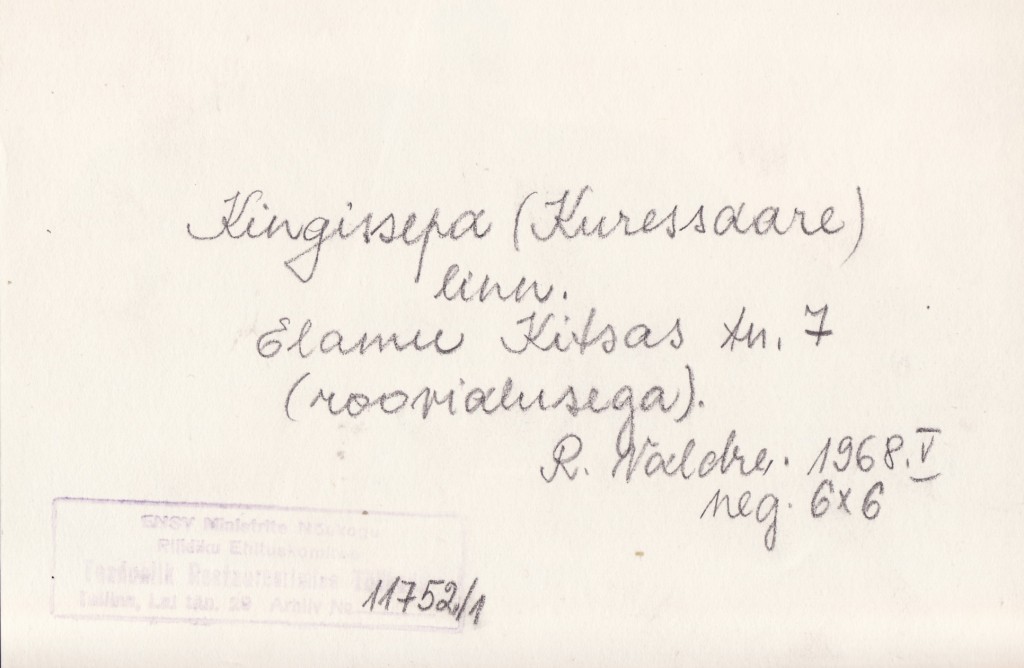 Kingissepa (Kuressaare)
linn.
Elamu Kitsas tn. 7
(roovialusega).
R. Valdre. 1968.V
neg. 6x6
ENSV Ministrite Nõukogu
Riikliku Ehituskomitee
Teaduslik Restaureerimise
Tallinn, Lai tän. 29 Arhiiv No 11752/1